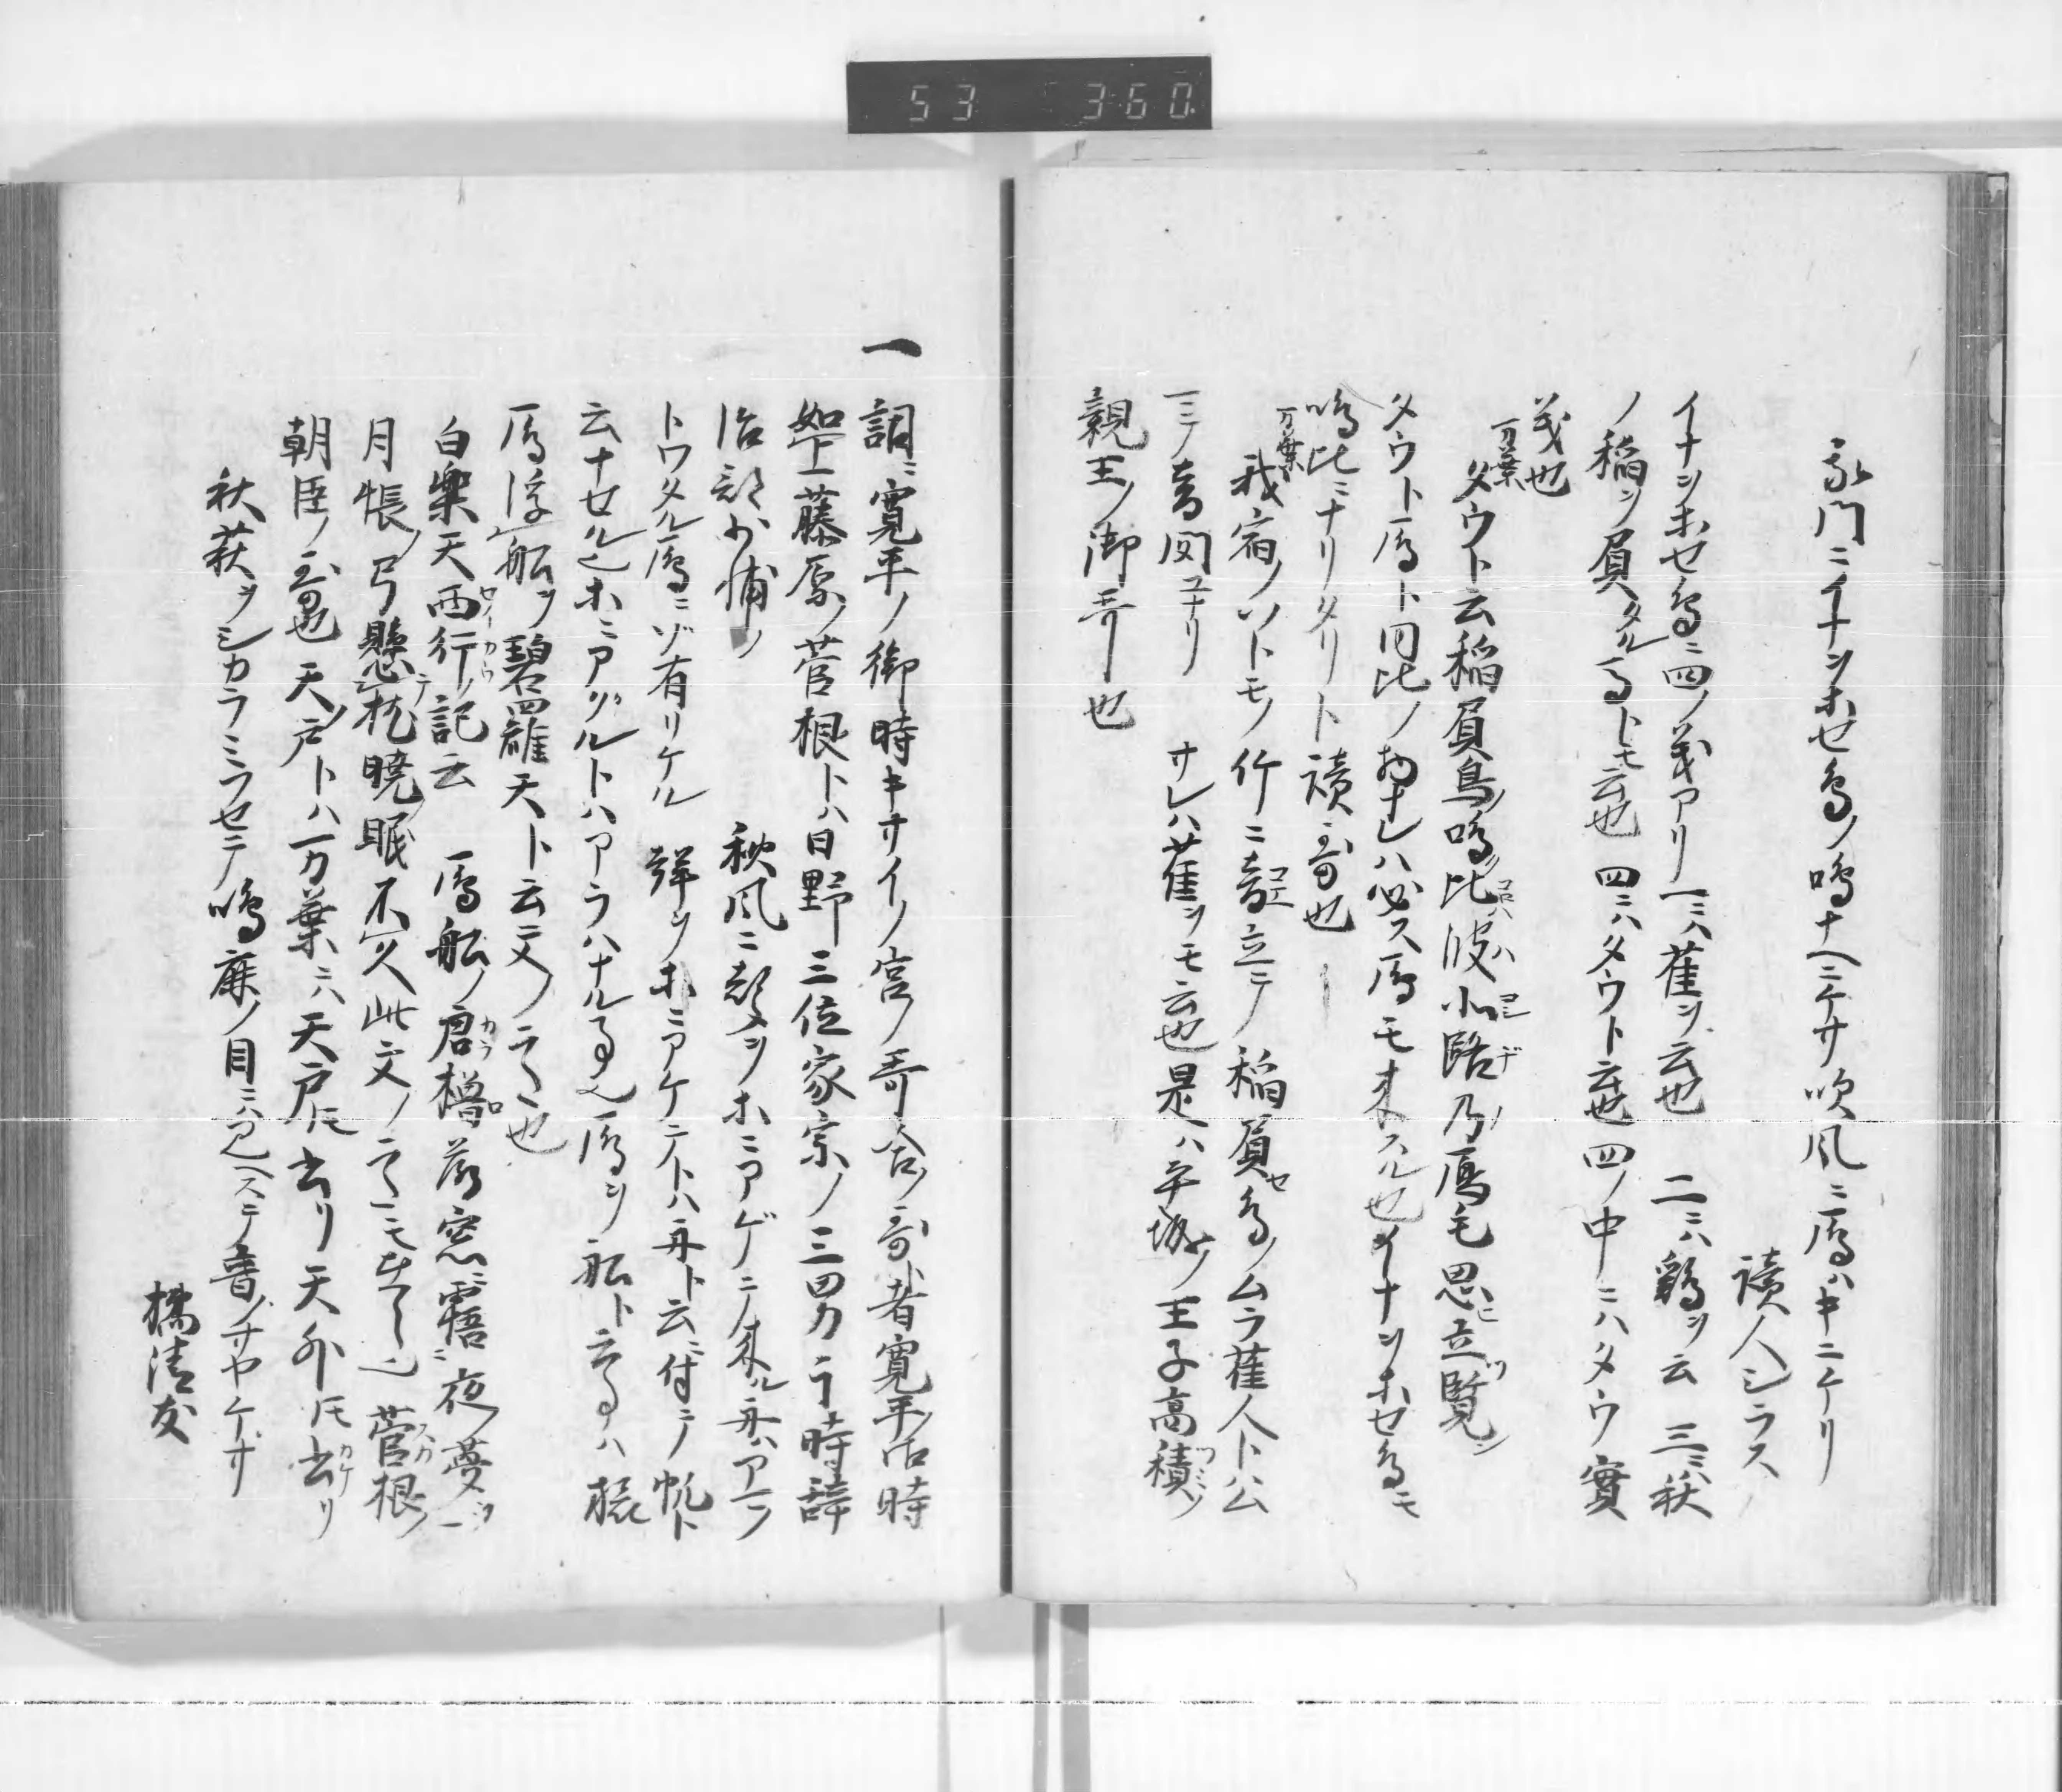 53 360
我門ニイナヲホセ鳥ノ鳴ナヘニケサ吹風ニ鴈ハキニケリ
読人シラス
イナヲホセ鳥ニ四ノ義アリ一ニハ雀ヲ云也 二ニハ鶏ヲ云 三ニハ秋
ノ稲ヲ負タル馬トモ云也 四ニハタウト云也四ノ中ニハタウ實
義也
万葉 タウト云稲負鳥ノ鳴ノ比ハ波小路乃鴈毛思立覧
タウト鴈ト同比ノ物ナレハ必ス鴈モ来ル也イナヲホセ鳥モ
鳴比ニナリタリト読哥也
万葉 我宿ノソトモノ竹ニ音立テノ稲負鳥ノムラ雀人ト公
ニノ音聞ユナリ サレハ雀ヲモ云也是ハ平城ノ王子高積ノ
親王ノ御哥也
一 詞ニ寛平ノ御時キサイノ宮ノ哥合ノ哥者寛平ノ御時
如上藤原ノ菅根トハ日野三位家宗ノ三男カ于時諱
治部少輔ノ 秋風ニ聲ヲホニアゲテ来ル舟ハアマノ
トワタル鴈ニゾ有リケル 聲ヲホニアケテトハ舟ト云ニ付テノ帆ト
云ナセル也ホニアガルトハアラハナル事也鴈ヲ船ト云事ハ
鴈浮船ヲ碧羅天ト云文ノ心也
白樂天西行ノ記云 鴈船ノ唐櫓 窓寤夜夢
月帳ノ弓懸枕暁眠不久此文ノ心モ 菅根ノ
朝臣ノ哥也天戸トハ万葉ニハ天戸 天外
秋萩ヲシカラミフセテ鳴鹿ノ目ニハミヘステ音ノサヤケサ
橘清友